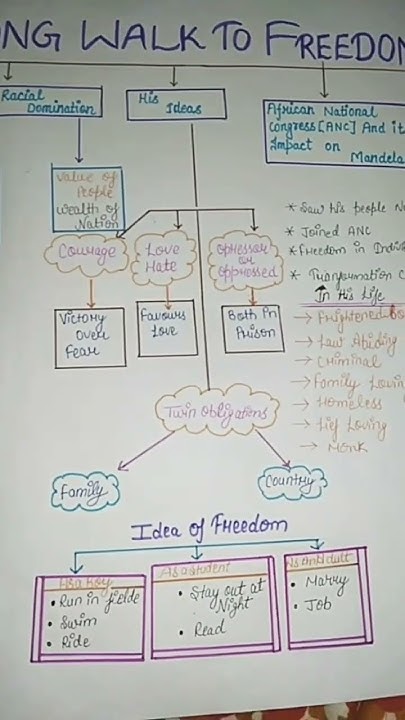 NG WALK TO FREEDOM
Racial
Domination
His
Ideas
African National
Congress [ANC] And it
Impact on
Mandela
Value of
People
Wealth of
Nation
Courage
Love
Hate
Oppressor
or
Oppressed
Victory
Over
Fear
Favours
Love
Both in
Prison
* Saw his people
* Joined ANC
* Freedom in
* Transformation
In His Life
→ Frightened
→ Law Abiding
→ Criminal
→ Family Loving
→ Homeless
→ Life Loving
→ Monk
Twin Obligations
Family
Country
Idea of Freedom
As a Boy
• Run in fields
• Swim
• Ride
As a student
• Stay out at
Night
• Read
As an Adult
• Marry
• Job